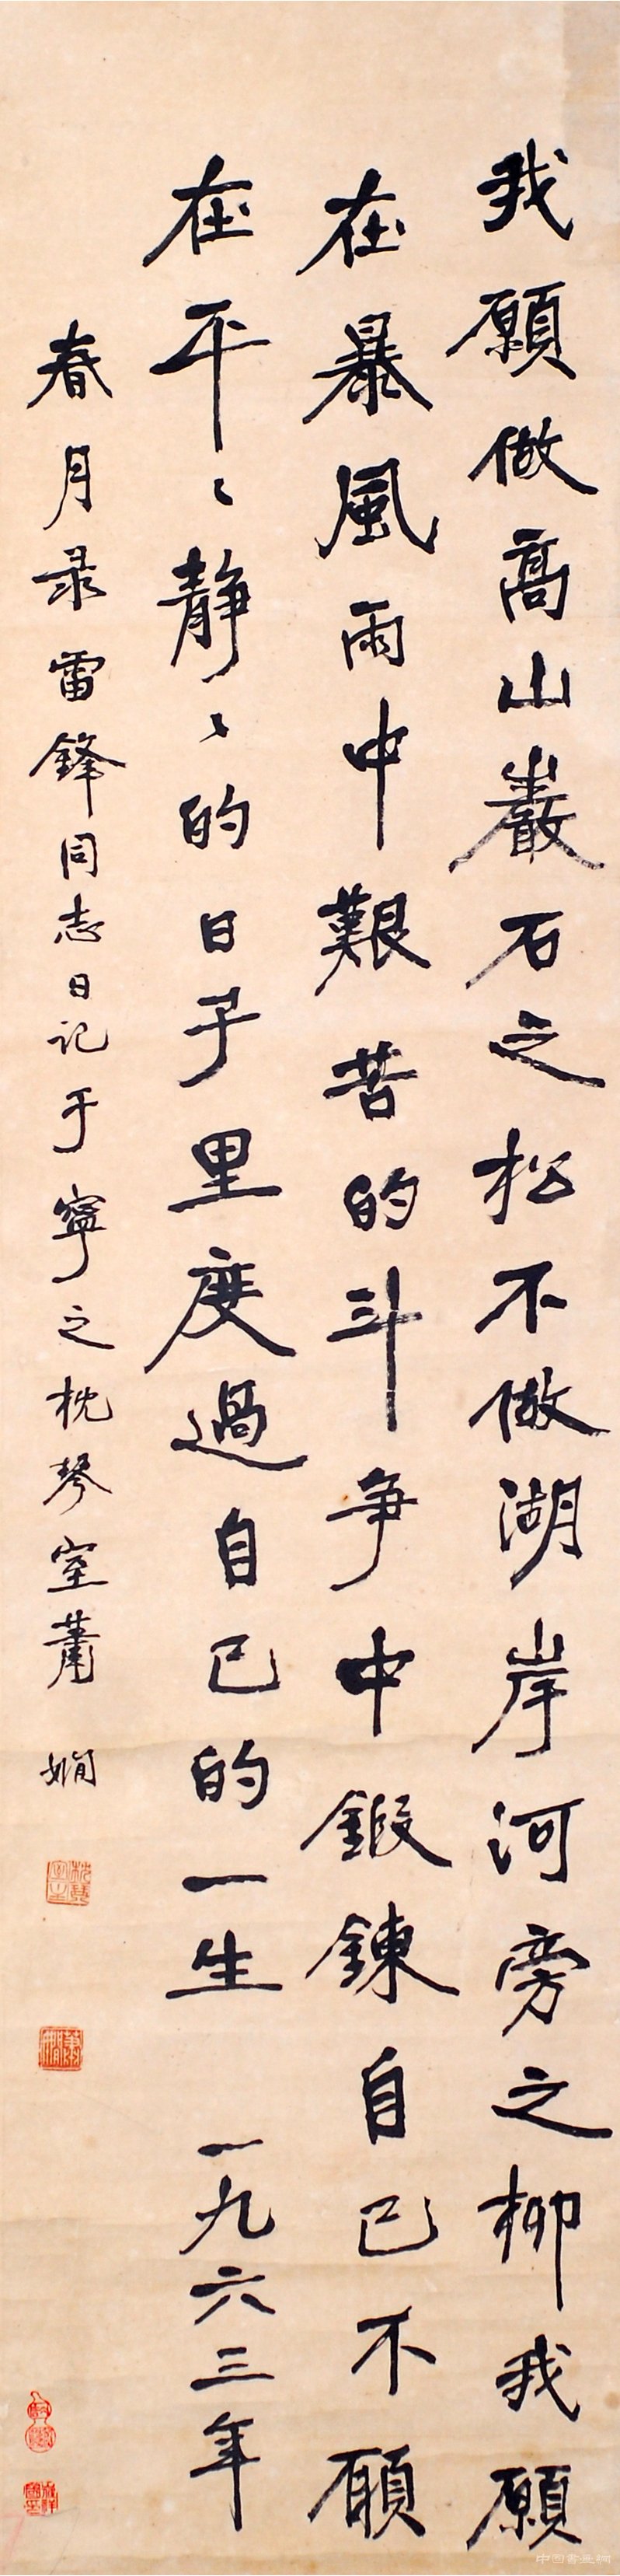 我願做高山巖石之松不做湖岸河旁之柳我願
在暴風雨中艱苦的斗爭中鍛鍊自己不願
在平〻靜〻的日子里度過自己的一生 一九六三年
春月录雷鋒同志日记于寧之枕琴室蕭嫻
枕琴室主
蕭嫻
中国書画網